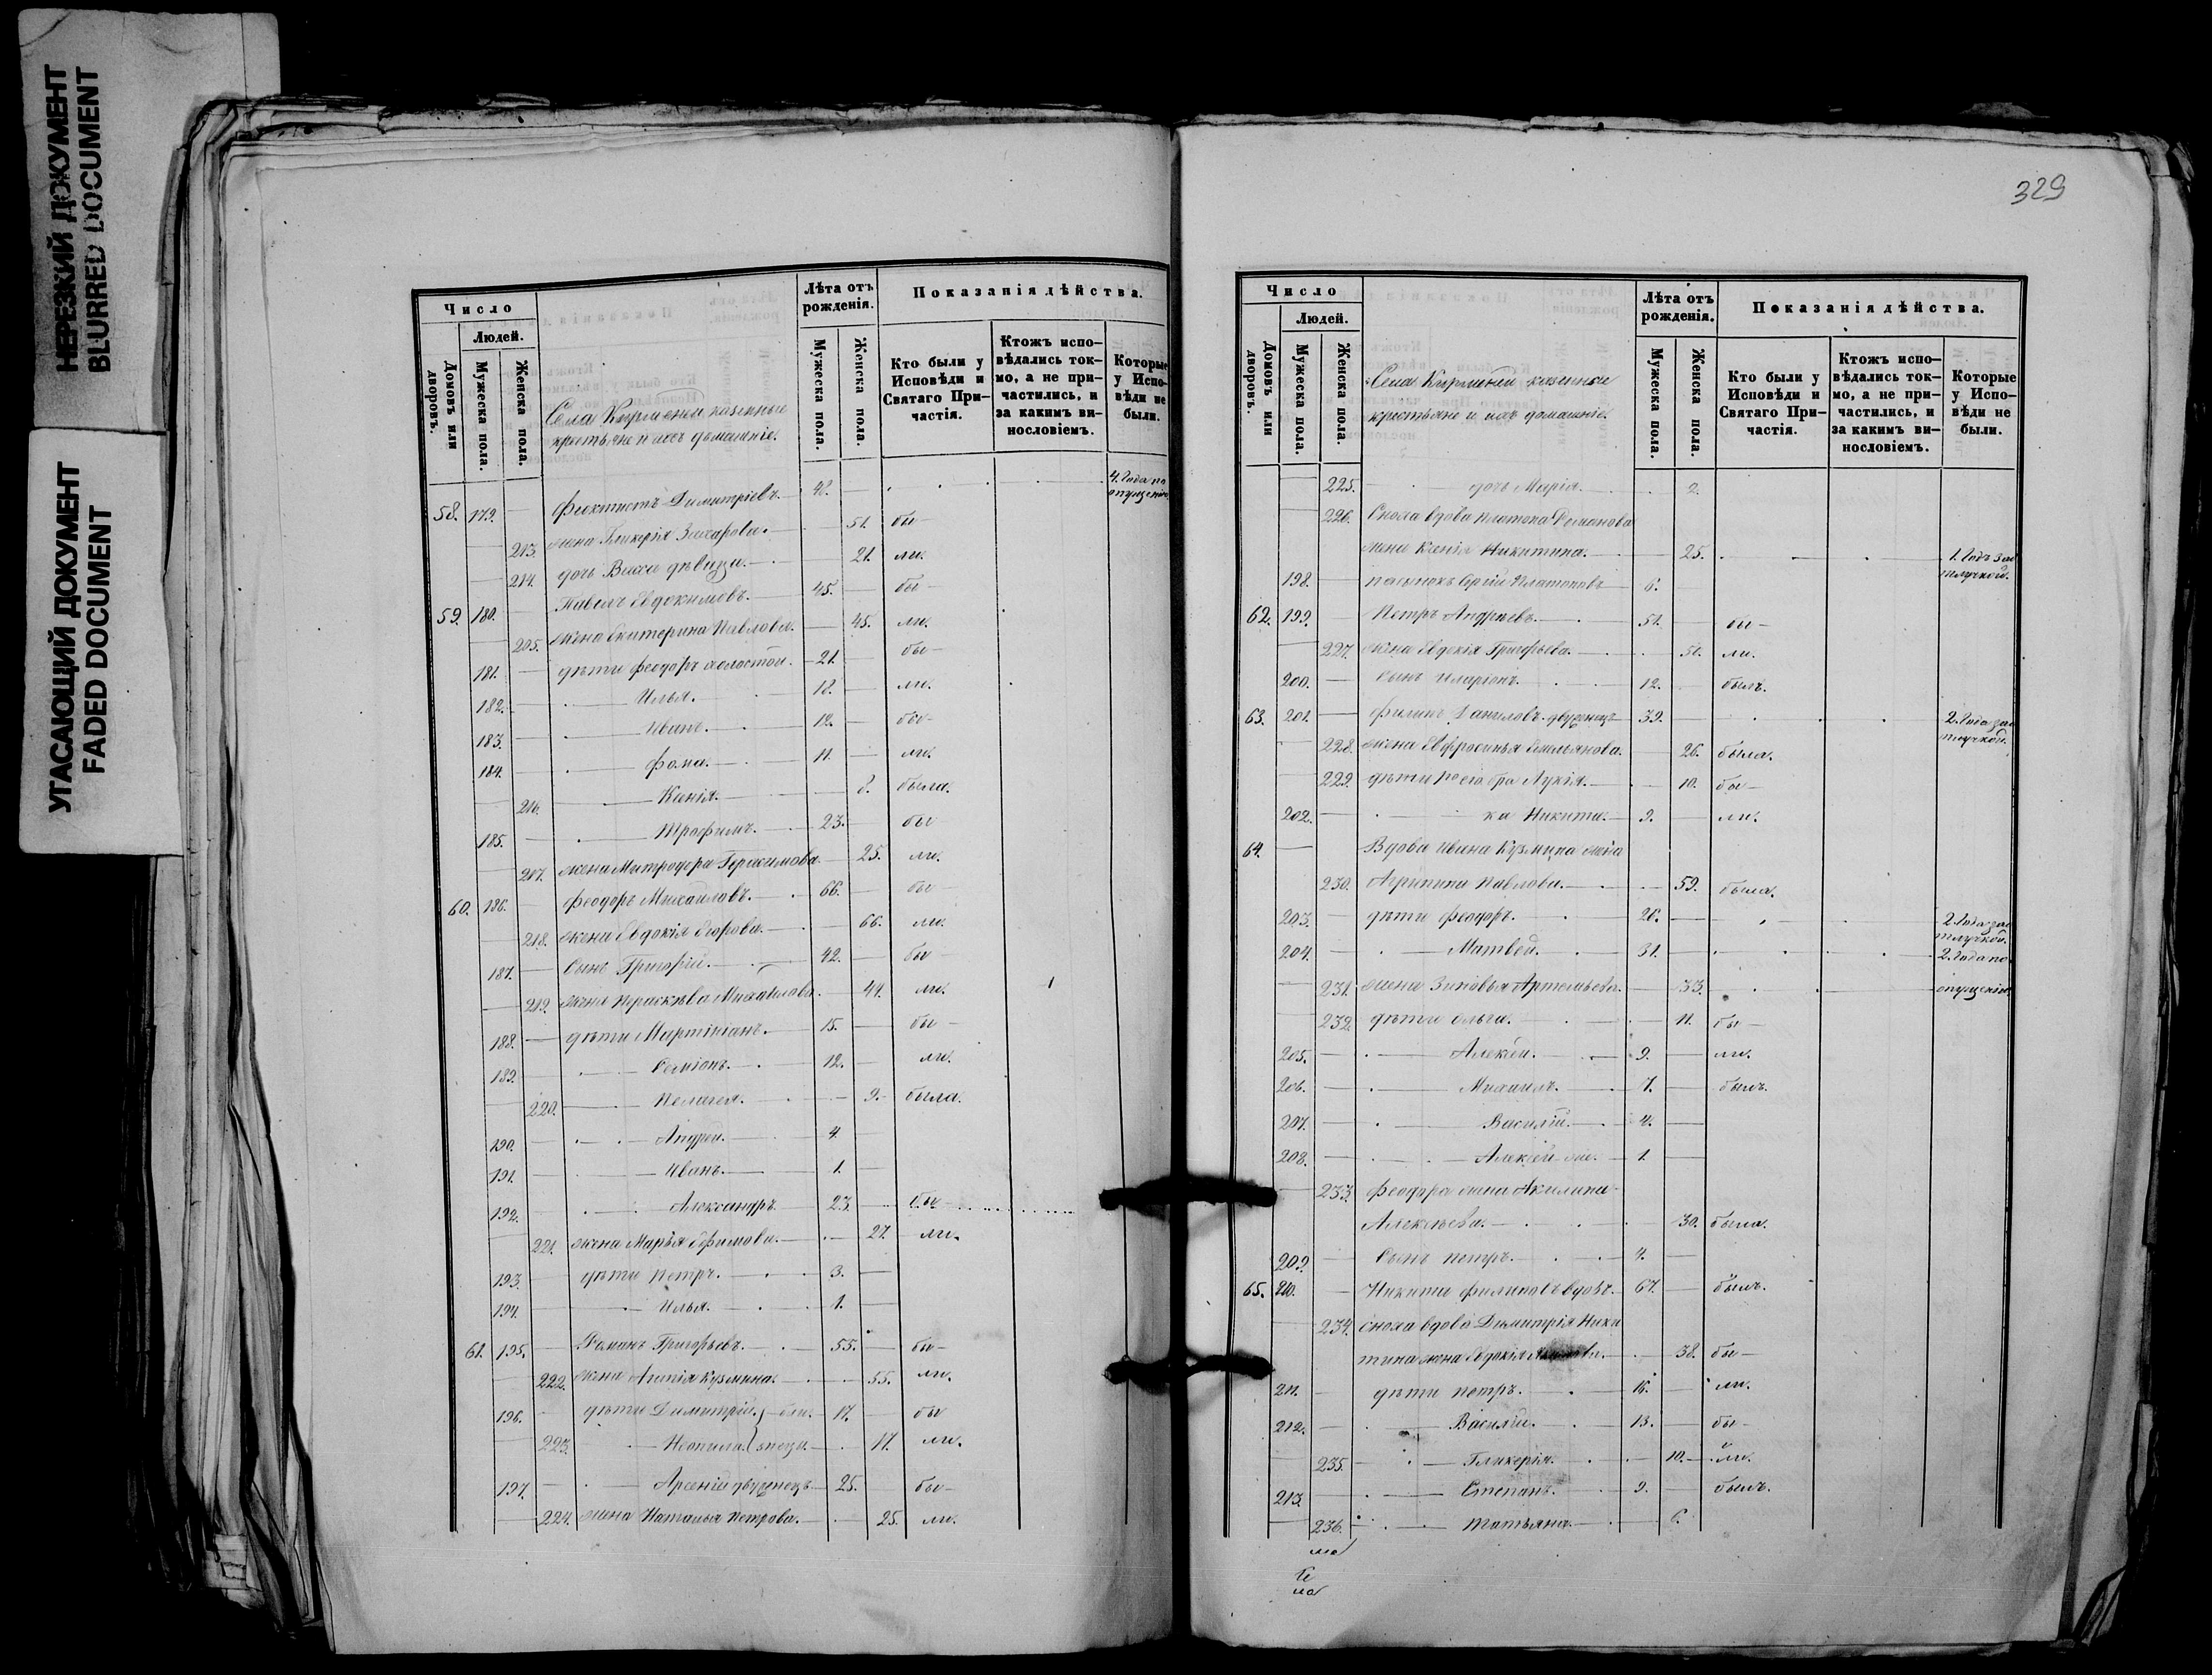 НЕРЕЗКИЙ ДОКУМЕНТ
BLURRED DOCUMENT
УГАСАЮЩИЙ ДОКУМЕНТ
FADED DOCUMENT
Число
Людей.
Домовъ или дворовъ.
Мужеска пола.
Женска пола.
Села Кирмени казенные
крестьяне и ихъ домашніе.
Лѣта отъ рожденія.
Мужеска пола.
Женска пола.
Показанія дѣйства.
Кто были у Исповѣди и Святаго Причастія.
Ктожъ исповѣдались токмо, а не причастились, и за какимъ винословіемъ.
Которые у Исповѣди не были.
58. 179. Феоктистъ Димитріевъ. 48. 4. Года по опущенію
213. жена Гликерія Захарова. 51. бы-
214. дочь Васса дѣвица. 21. ли.
59. 180. Павелъ Евдокимовъ. 45. бы-
215. жена Екатерина Павлова. 45. ли.
181. дѣти Феодоръ холостой. 21. бы-
182. Илья. 18. ли.
183. Иванъ. 12. бы-
184. Фома. 11. ли.
216. Ксенія. 8. была.
185. Трофимъ. 23. бы
217. жена Митродора Герасимова 25. ли.
60. 186. Феодоръ Михайловъ. 66. бы
218. жена Евдокія Егорова. 66. ли.
187. Сынъ Григорій. 42. бы
219. жена Прасковья Михайлова. 41. ли.
188. дѣти Мартиніанъ. 15. бы
189. Семіонъ. 12. ли.
220. Пелагея. 9. была.
190. Андрей. 4.
191. Иванъ. 1.
192. Александръ 23. бы
221. жена Марья Ефимова. 27. ли.
193. дѣти Петръ. 3.
194. Илья. 1.
61. 195. Романъ Григорьевъ. 55. бы-
222. жена Агапія Кузмина. 55. ли.
196. дѣти Димитрій. бли- 17. бы
223. Неонила. знецы. 17. ли.
197. Арсеній двуженецъ 25. бы-
224. жена Наталья Петрова. 25. ли.
329
Число
Людей.
Домовъ или дворовъ.
Мужеска пола.
Женска пола.
Села Кирмени казенные
крестьяне и ихъ домашніе.
Лѣта отъ рожденія.
Мужеска пола.
Женска пола.
Показанія дѣйства.
Кто были у Исповѣди и Святаго Причастія.
Ктожъ исповѣдались токмо, а не причастились, и за какимъ винословіемъ.
Которые у Исповѣди не были.
225. дочь Марія. 2.
226. Сноха вдова Платона Романова
жена Ксенія Никитина. 25. 1. Годъ за отлучкой.
198. пасынокъ Платоновъ 6.
62. 199. Петръ Андреевъ. 51. бы-
227. жена Евдокія Григорьева. 50. ли.
200. Сынъ Иларіонъ. 12. былъ.
63. 201. Филипъ Даниловъ двуженецъ 39. 2. Года за отлучкой.
228. жена Евфросинья Емельянова. 26. была.
229. дѣти 1го его бра Лукія. 10. бы-
202. ка Никита. 9. ли.
64. Вдова Ивана Кузмина жена
230. Агрипина Павлова. 59. была.
203. дѣти Феодоръ. 26. 2. Года за отлучкой.
204. Матвей. 31. 2. Года по
231. жена Зиновья Артемьева. 33. опущенію
232. дѣти Ольга. 11. бы-
205. Алексѣй. 9. ли.
206. Михаилъ. 7. былъ.
207. Василій. 4.
208. Алексѣй же. 1.
233. Феодора жена Акилина
Алексѣева. 30. была.
209. Сынъ Петръ. 4.
65. 210. Никита Филиповъ вдовъ. 67. былъ.
234. сноха вдова Димитрія Ники
тина жена Евдокія 38. бы-
211. дѣти Петръ. 16. ли.
212. Василій. 13. бы-
235. Гликерія. 10. ли.
213. Степанъ. 9. былъ.
236. Татьяна. 6.